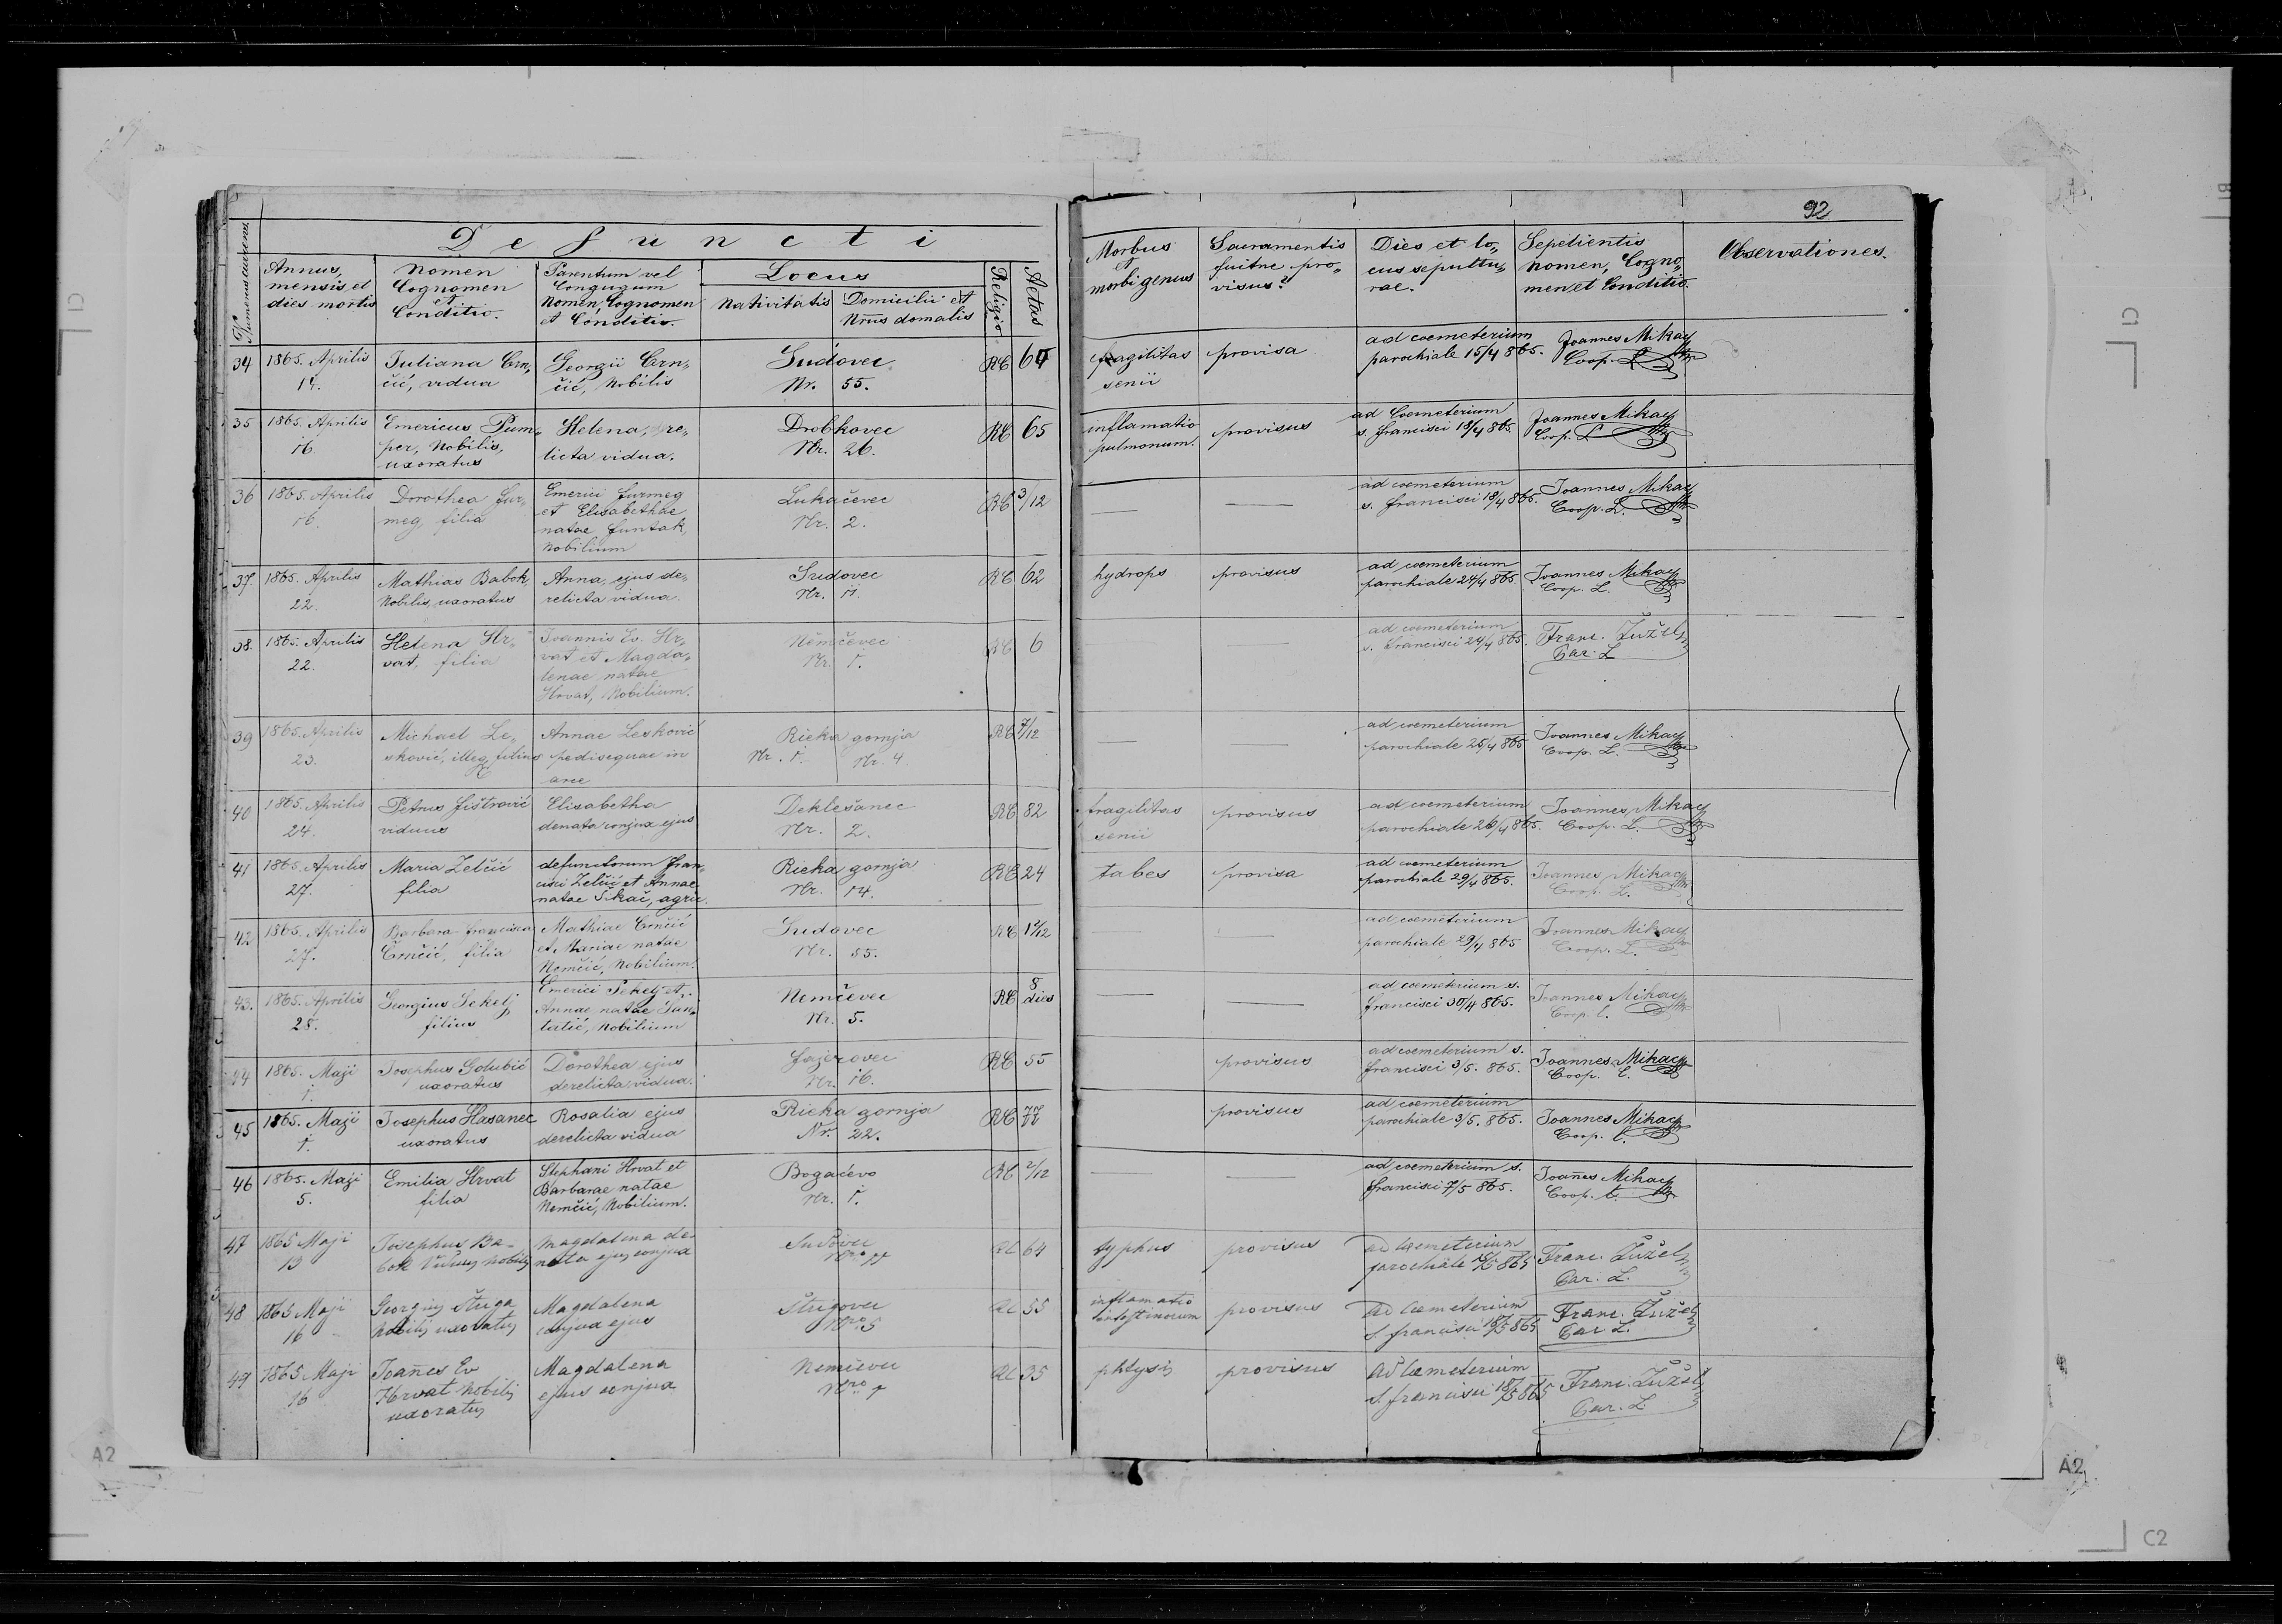 92
Defuncti
Numerus currens
Annus, mensis et dies mortis
Nomen Cognomen et Conditio.
Parentum vel Conjugum Nomen Cognomen et Conditio.
Locus
Nativitatis
Domicilii et Nrus domalis
Religio
Aetas
Morbus et morbi genus
Sacramentis fuitne pro„ visus?
Dies et lo„ cus sepultu„ rae.
Sepelientis nomen, Cogno„ men et Conditio.
Observationes.
34 1865. Aprilis 14. Juliana Crn„ čić, vidua Georgii Crn„ čić, Nobilis Sudovec Nr. 55. RC 64 fragilitas senii provisa ad coemeterium parochiale 15/4 865. Joannes Mikac Coop. L.
35 1865. Aprilis 16. Emericus Pum„ per, Nobilis, uxoratus Helena, re„ licta vidua. Drobkovec Nr. 26. RC 65 inflamatio pulmonum. provisus ad Coemeterium s. Francisci 18/4 865. Joannes Mikac Coop. L
36 1865. Aprilis 16. Dorothea Jur„ meg, filia Emerici Jurmeg et Elisabethae natae Funtak, Nobilium Lukačevec Nr. 2. RC 3/12 — — ad coemeterium s. Francisci 18/4 865. Joannes Mikac Coop. L.
37. 1865. Aprilis 22. Mathias Babok, Nobilis, uxoratus Anna, ejus de„ relicta vidua. Sudovec Nr. 11. RC 62 hydrops provisus ad coemeterium parochiale 24/4 865. Joannes Mikac Coop. L.
38. 1865. Aprilis 22. Helena Hr„ vat, filia Joannis Ev. Hr„ vat et Magda„ lenae natae Hrvat, Nobilium. Nemčevec Nr. 1. RC 6 — — ad coemeterium s. Francisci 24/4 865. Franc. Žužel Par. L
39 1865. Aprilis 23. Michael Le„ sković, illeg. filius Annae Lesković pedisequae in arce Rieka gornja Nr. 1. Nr. 4 RC 7/12 — — ad coemeterium parochiale 25/4 865 Joannes Mikac Coop. L.
40 1865. Aprilis 24. Petrus Fištrović viduus Elisabetha denata conjux ejus Deklešanec Nr. 2. RC 82 fragilitas senii provisus ad coemeterium parochiale 26/4 865. Joannes Mikac Coop. L.
41 1865. Aprilis 27. Maria Zelčić filia defunctorum Fran„ cisci Zelčić et Annae natae Sikač, agric. Rieka gornja Nr. 14. RC 24 tabes provisa ad coemeterium parochiale 29/4 865. Joannes Mikac Coop. L.
42 1865. Aprilis 27. Barbara Francisca Črnčić, filia Mathiae Crnčić et Mariae natae Nemčić, Nobilium. Sudovec Nr. 55. RC — — ad coemeterium parochiale 29/4 865 Joannes Mikac Coop. L.
43. 1865. Aprilis 28. Georgius Sekelj filius Emerici Sekelj et Annae natae Nobilium Nemčevec Nr. 5. RC 8 dies — — ad coemeterium s. Francisci 30/4 865. Joannes Mikac Coop. L.
44 1865. Maji 1. Josephus Golubić uxoratus Dorothea ejus derelicta vidua. Fajerovec Nr. 16. RC 55 provisus ad coemeterium s. Francisci 3/5. 865. Joannes Mikac Coop. L.
45 1865. Maji 1. Josephus Hasanec uxoratus Rosalia ejus derelicta vidua Rieka gornja Nr. 22. RC 77 provisus ad coemeterium parochiale 3/5. 865. Joannes Mikac Coop. L.
46 1865. Maji 5. Emilia Hrvat filia Stephani Hrvat et Barbarae natae Nemčić, Nobilium. Bogačevo Nr. 1. RC 2/12 — — ad coemeterium s. Francisci 7/5 865. Joañes Mikac Coop. L.
47 1865 Maji 13 Josephus Ba- bok Viduus nobilis Magdalena de- nata ejus conjux Sudovec Nro RC 64 typhus provisus ad coemeterium parochiale 865 Franc. Žužel Par. L.
48 1865 Maji 16 Georgius Štriga Nobilis uxoratus Magdalena conjux ejus Štrigovec Nro 5 RC 55 inflamatio intestinorum provisus ad coemeterium S. Francisci 18/5 865 Franc. Žužel Par L.
49 1865 Maji 16 Joañes Ev Hrvat Nobilis uxoratus Magdalena ejus conjux Nemčevec Nro 1 RC 35 phtysis provisus ad coemeterium S. Francisci 18/5 865 Franc. Žužel Par. L.
C1
C1
A2
A2
C2